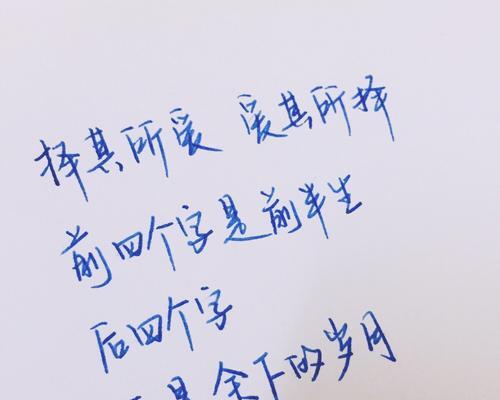 择其所爱 爱其所择
前四个字是前半生
后四个字
是余下的岁月